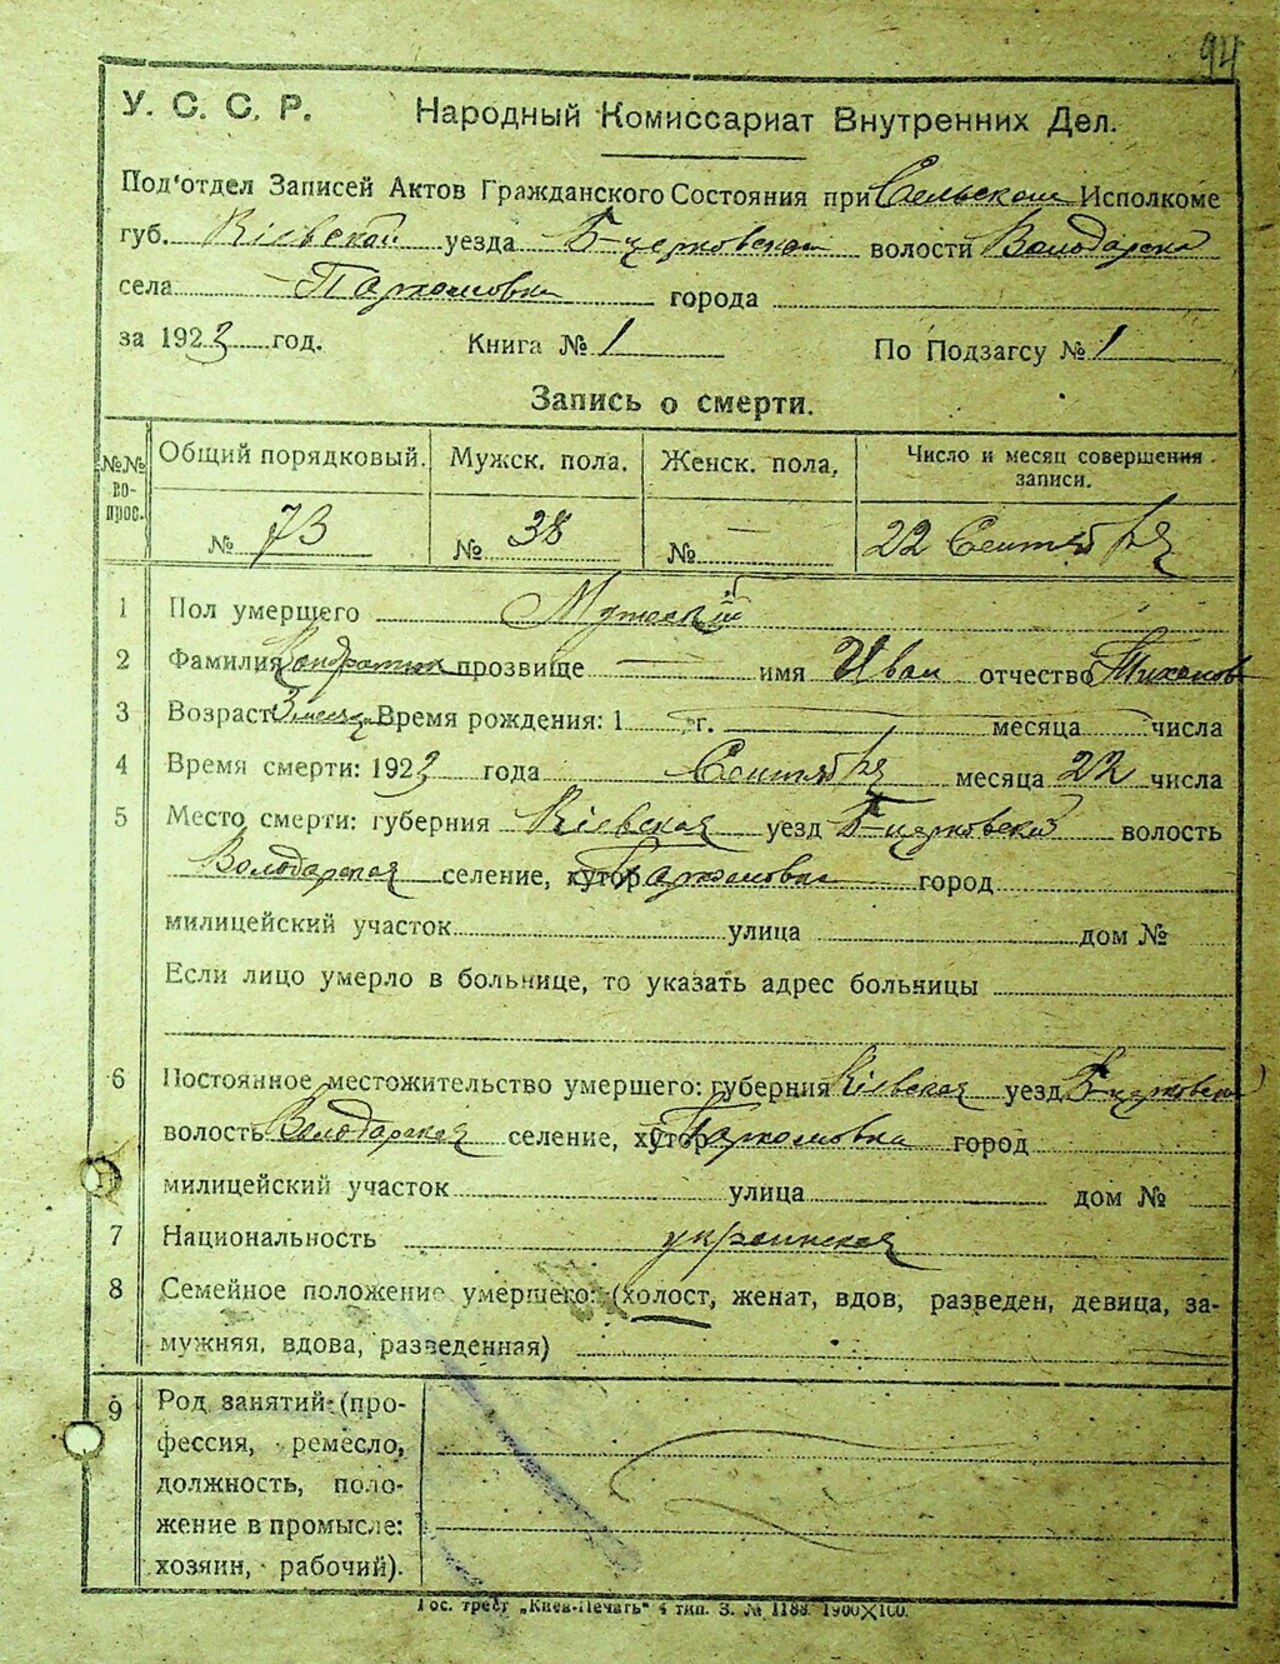 94
У. С. С. Р. Народный Комиссариат Внутренних Дел.
Под'отдел Записей Актов Гражданского Состояния при Сельском Исполкоме
губ. Кіевской уезда Б-церковской волости Володарска
села Пархомовка города
за 1923 год. Книга № 1 По Подзагсу № 1
Запись о смерти.
№№ во-прос. Общий порядковый. Мужск. пола. Женск. пола. Число и месяц совершения записи.
№ 73 № 38 № — 22 Сентября
1 Пол умершего Мужский
2 Фамилия Кондратюк прозвище — имя Иван отчество Тиханов
3 Возраст 3 месяц Время рождения: 1 г. месяца числа
4 Время смерти: 1923 года Сентября месяца 22 числа
5 Место смерти: губерния Кіевская уезд Б-церковский волость
Володарская селение, хутор Пархомовка город
милицейский участок улица дом №
Если лицо умерло в больнице, то указать адрес больницы
6 Постоянное местожительство умершего: губерния Кіевская уезд Б-церковский
волость Володарская селение, хутор Пархомовка город
милицейский участок улица дом №
7 Национальность украинская
8 Семейное положение умершего: (холост, женат, вдов, разведен, девица, за-
мужняя, вдова, разведенная)
9 Род занятий: (про-
фессия, ремесло,
должность, поло-
жение в промысле:
хозяин, рабочий).
Гос. трест „Киев-Печать" 4 тип. З. № 1188. 1900X100.